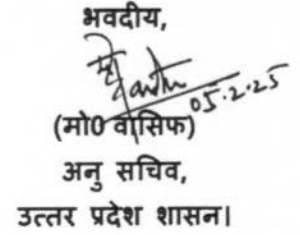 भवदीय,
05.2.25
(मो0 वासिफ)
अनु सचिव,
उत्तर प्रदेश शासन।